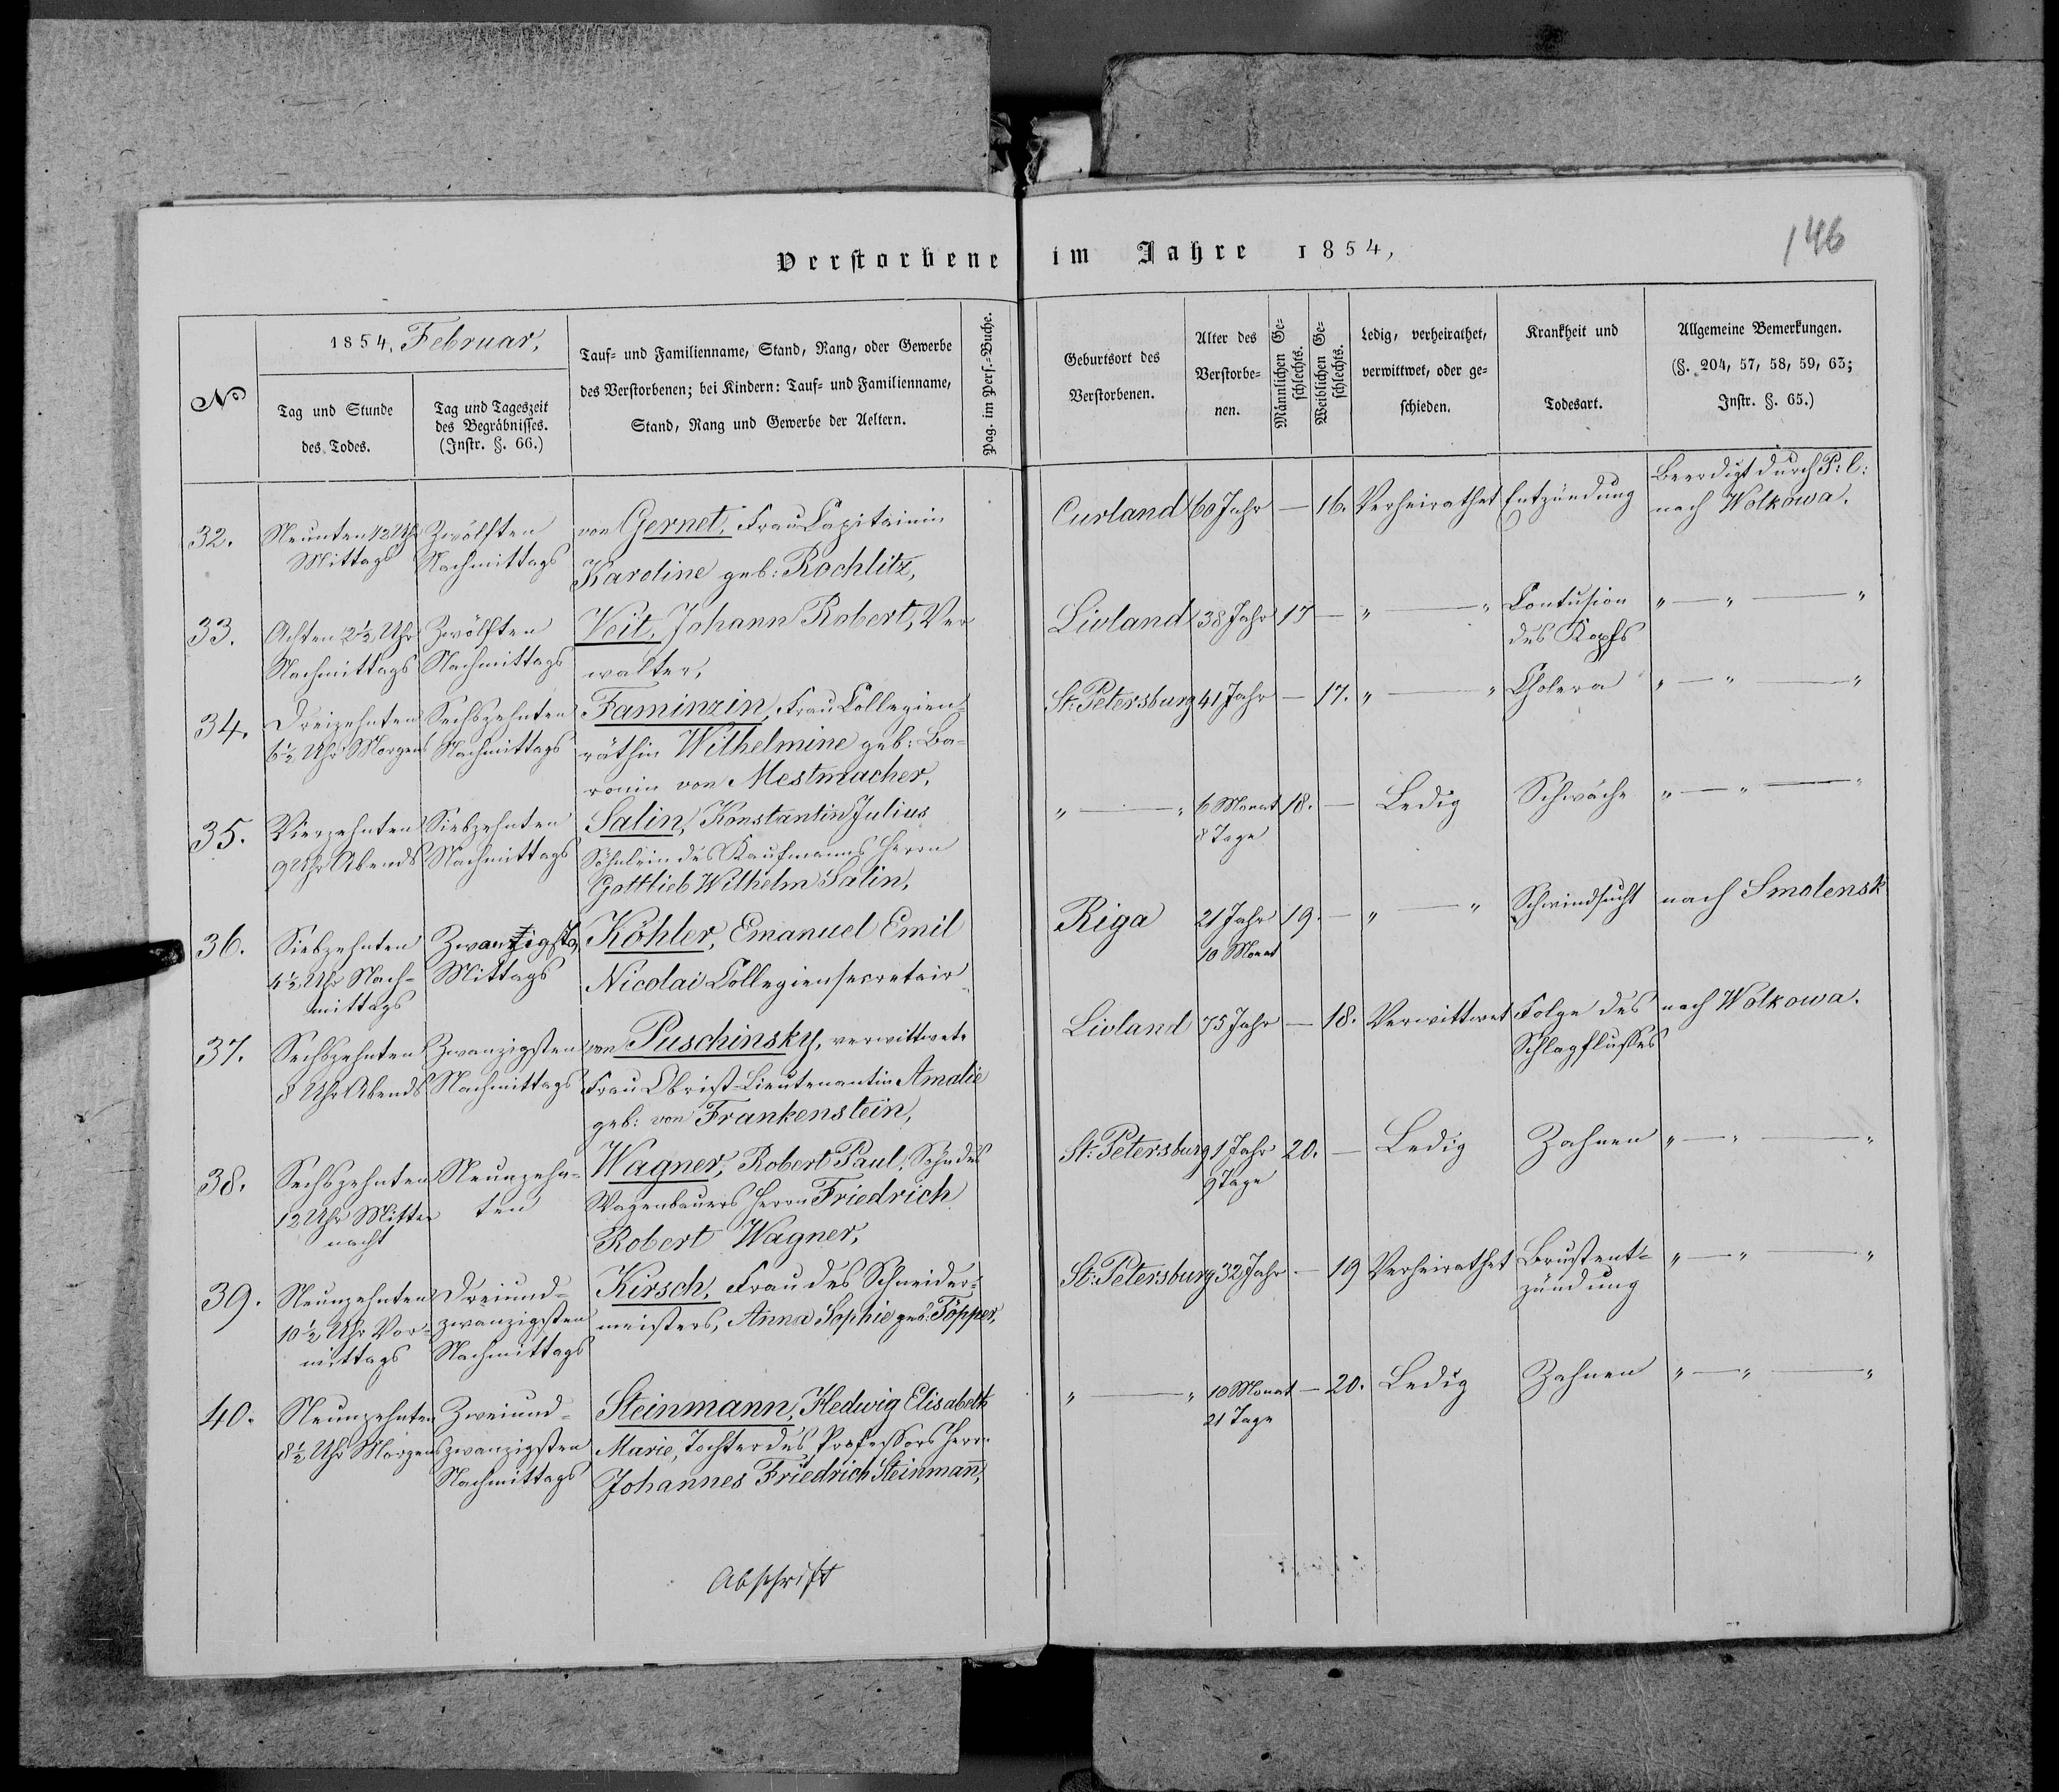 Verstorbene im Jahre 1854,
146
No
1854, Februar,
Tag und Stunde
des Todes.
Tag und Tageszeit
des Begräbnisses.
(Instr. §. 66.)
Tauf- und Familienname, Stand, Rang, oder Gewerbe
des Verstorbenen; bei Kindern: Tauf- und Familienname,
Stand, Rang und Gewerbe der Aeltern.
Pag. im Pers.-Buche.
Geburtsort des
Verstorbenen.
Alter des
Verstorbe-
nen.
Männlichen Ge-
schlechts.
Weiblichen Ge-
schlechts.
Ledig, verheirathet,
verwittwet, oder ge-
schieden.
Krankheit und
Todesart.
Allgemeine Bemerkungen.
(§. 204, 57, 58, 59, 63;
Instr. §. 65.)
32.
Neunten 12 Uhr
Mittags
Zwölften
Nachmittags
von Gernet, Frau Capitainin
Karoline geb: Rochlitz,
Curland
60 Jahr
—
16.
Verheirathet
Entzündung
Beerdigt durch P: C:
nach Wolkowa.
33.
Achten 2½ Uhr
Nachmittags
Zwölften
Nachmittags
Veit, Johann Robert, Ver
walter,
Livland
38 Jahr
17
—
„ — „
Contusion
des Kopfs
„ — „ — „
34.
Dreizehnten
6½ Uhr Morgens
Sechszehnten
Nachmittags
Faminzin, Frau Collegien-
räthin Wilhelmine geb: Ba-
ronin von Mestmacher,
St: Petersburg
41 Jahr
—
17.
„ — „
Cholera
„ — „ — „
35.
Vierzehnten
9 Uhr Abends
Siebzehnten
Nachmittags
Salin, Konstantin Julius
Söhnlein des Kaufmanns Herrn
Gottlieb Wilhelm Salin,
„ — „
6 Monat
8 Tage
18.
—
Ledig
Schwäche
„ — „ — „
36.
Siebzehnten
4½ Uhr Nach-
mittags
Zwanzigsten
Mittags
Köhler, Emanuel Emil
Nicolai Collegiensecretair
Riga
21 Jahr
10 Monat
19.
—
„ — „
Schwindsucht
nach Smolensk
37.
Sechszehnten
8 Uhr Abends
Zwanzigsten
Nachmittags
von Puschinsky, verwittwete
Frau Obrist-Lieutenantin Amalie
geb: von Frankenstein,
Livland
75 Jahr
—
18.
Verwittwet
Folge des
Schlagflusses
nach Wolkowa.
38.
Sechszehnten
12 Uhr Mitter
nacht
Neunzehn-
ten
Wagner, Robert Paul, Sohn des
Wagenbauers Herrn Friedrich
Robert Wagner,
St: Petersburg
1 Jahr
9 Tage
20.
—
Ledig
Zahnen
„ — „ — „
39.
Neunzehnten
10½ Uhr Vor-
mittags
Dreiund-
zwanzigsten
Nachmittags
Kirsch, Frau des Schneider-
meisters, Anna Sophie geb: Töpper,
St: Petersburg
32 Jahr
—
19
Verheirathet
Brustent-
zündung
„ — „ — „
40.
Neunzehnten
8½ Uhr Morgens
Zweiund-
zwanzigsten
Nachmittags
Steinmann, Hedwig Elisabeth
Marie, Tochter des Professors Herrn
Johannes Friedrich Steinmañ,
„ — „
10 Monat
21 Tage
—
20.
Ledig
Zahnen
„ — „ — „
Abschrift